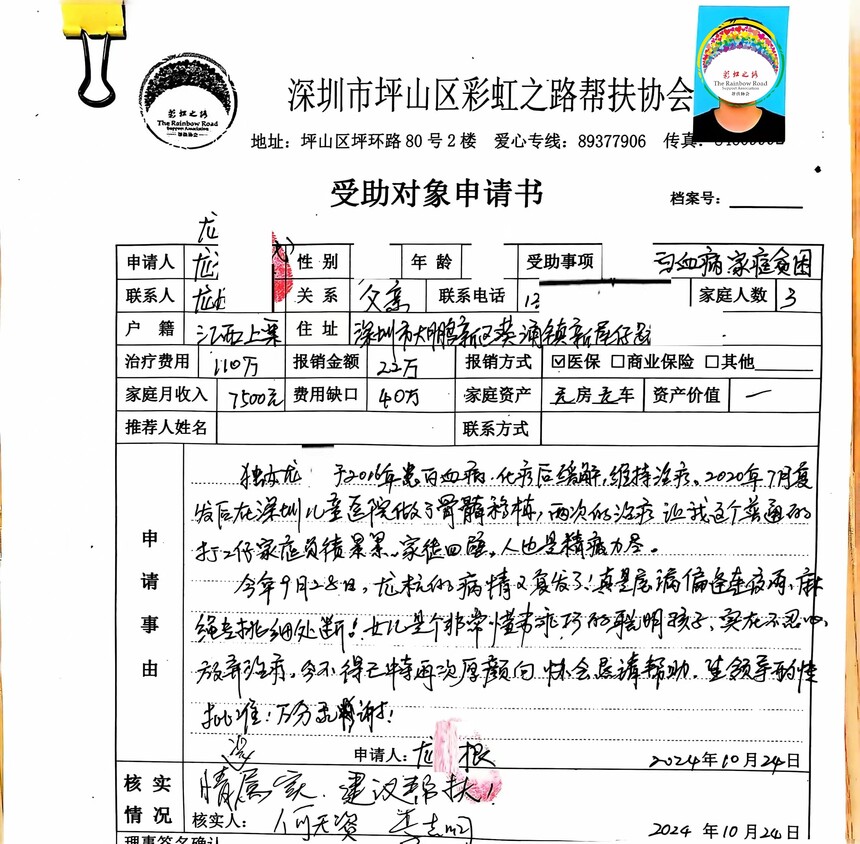 彩虹之路
The Rainbow Road
Support Association
帮扶协会
深圳市坪山区彩虹之路帮扶协会
彩虹之路
The Rainbow Road
Support Association
帮扶协会
地址：坪山区坪环路80号2楼 爱心专线：89377906 传真：
受助对象申请书
档案号：
龙
申请人 龙 性别 年龄 受助事项 白血病家庭贫困
联系人 龙 关系 父亲 联系电话 家庭人数 3
户籍 江西上栗 住址 深圳市大鹏新区葵涌镇新屋仔
治疗费用 110万 报销金额 22万 报销方式 ☑医保 □商业保险 □其他
家庭月收入 7500元 费用缺口 40万 家庭资产 无房无车 资产价值 一
推荐人姓名 联系方式
申请事由
龙 于2016年患白血病，化疗后缓解，维持治疗。2020年7月复
发后在深圳儿童医院做了骨髓移植，两次的治疗让我这个普通的
打工仔家庭负债累累，家徒四壁。人也是精疲力尽。
今年9月28日，龙 的病情又复发了！真是屋漏偏逢连夜雨，麻
绳专挑细处断！女儿是个非常懂事乖巧的聪明孩子，实在不忍心
放弃治疗。今不得已特再次厚颜向协会恳请帮助。望领导酌情
批准！万分感谢！
申请人：龙 根 2024年10月24日
核实情况
情况属实，建议帮扶！
核实人：何天资 李志明 2024年10月24日
理事签名确认